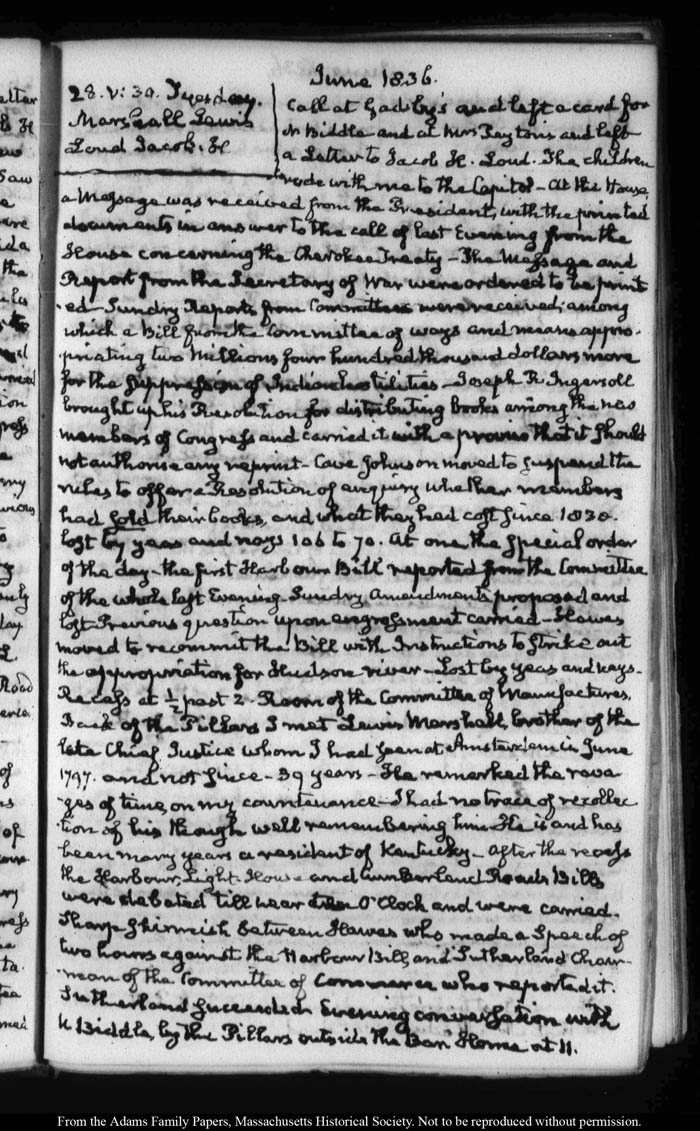 June 1836.
28. V: 30. Tuesday.
Marshall Lewis
Loud Jacob. H.
Call at Gadsby's and left a card for
N Biddle and at Mrs Peyton's and left
a Letter to Jacob H. Loud. The children
rode with me to the Capitol – At the House,
a Message was received from the President, with the printed
documents in answer to the call of last Evening from the
House concerning the Cherokee Treaty – The Message and
Report from the Secretary of War were ordered to be print
ed – Sundry Reports from Committees were received; among
which a Bill from the Committee of ways and means appro-
priating two Millions four hundred thousand dollars more
for the suppression of Indian hostilities – Joseph R. Ingersoll
brought up his Resolution for distributing books among the new
members of Congress and carried it with a proviso that it should
not authorise any reprint – Cave Johnson moved to suspend the
rules to offer a Resolution of enquiry whether members
had sold their books, and what they had cost since 1830.
lost by yeas and nays 106 to 70. At one, the special order
of the day – the first Harbour Bill reported from the Committee
of the whole last Evening. Sundry amendments proposed and
lost – Previous question upon engrossment carried – Hawes
moved to recommit the Bill with Instructions to strike out
the appropriation for Hudson river – Lost by yeas and nays.
Recess at ½ past 2. Room of the Committee of Manufactures.
Back of the Pillars I met Lewis Marshall, brother of the
late Chief Justice whom I had seen at Amsterdam in June
1797. and not since – 39 years – He remarked the rava
ges of time, on my countenance – I had no trace of recollec
tion of his though well remembering him. He is and has
been many years a resident of Kentucky – After the recess
the Harbour, Light-House and Cumberland Roads Bills
were debated till near O'Clock and were carried.
Sharp skirmish between Hawes who made a speech of
two hours against the Harbour Bill, and Sutherland Chair-
man of the Committee of Commerce who reported it.
Sutherland succeeded. Evening conversation with
N Biddle, by the Pillars outside the Bar. Home at 11.
From the Adams Family Papers, Massachusetts Historical Society. Not to be reproduced without permission.